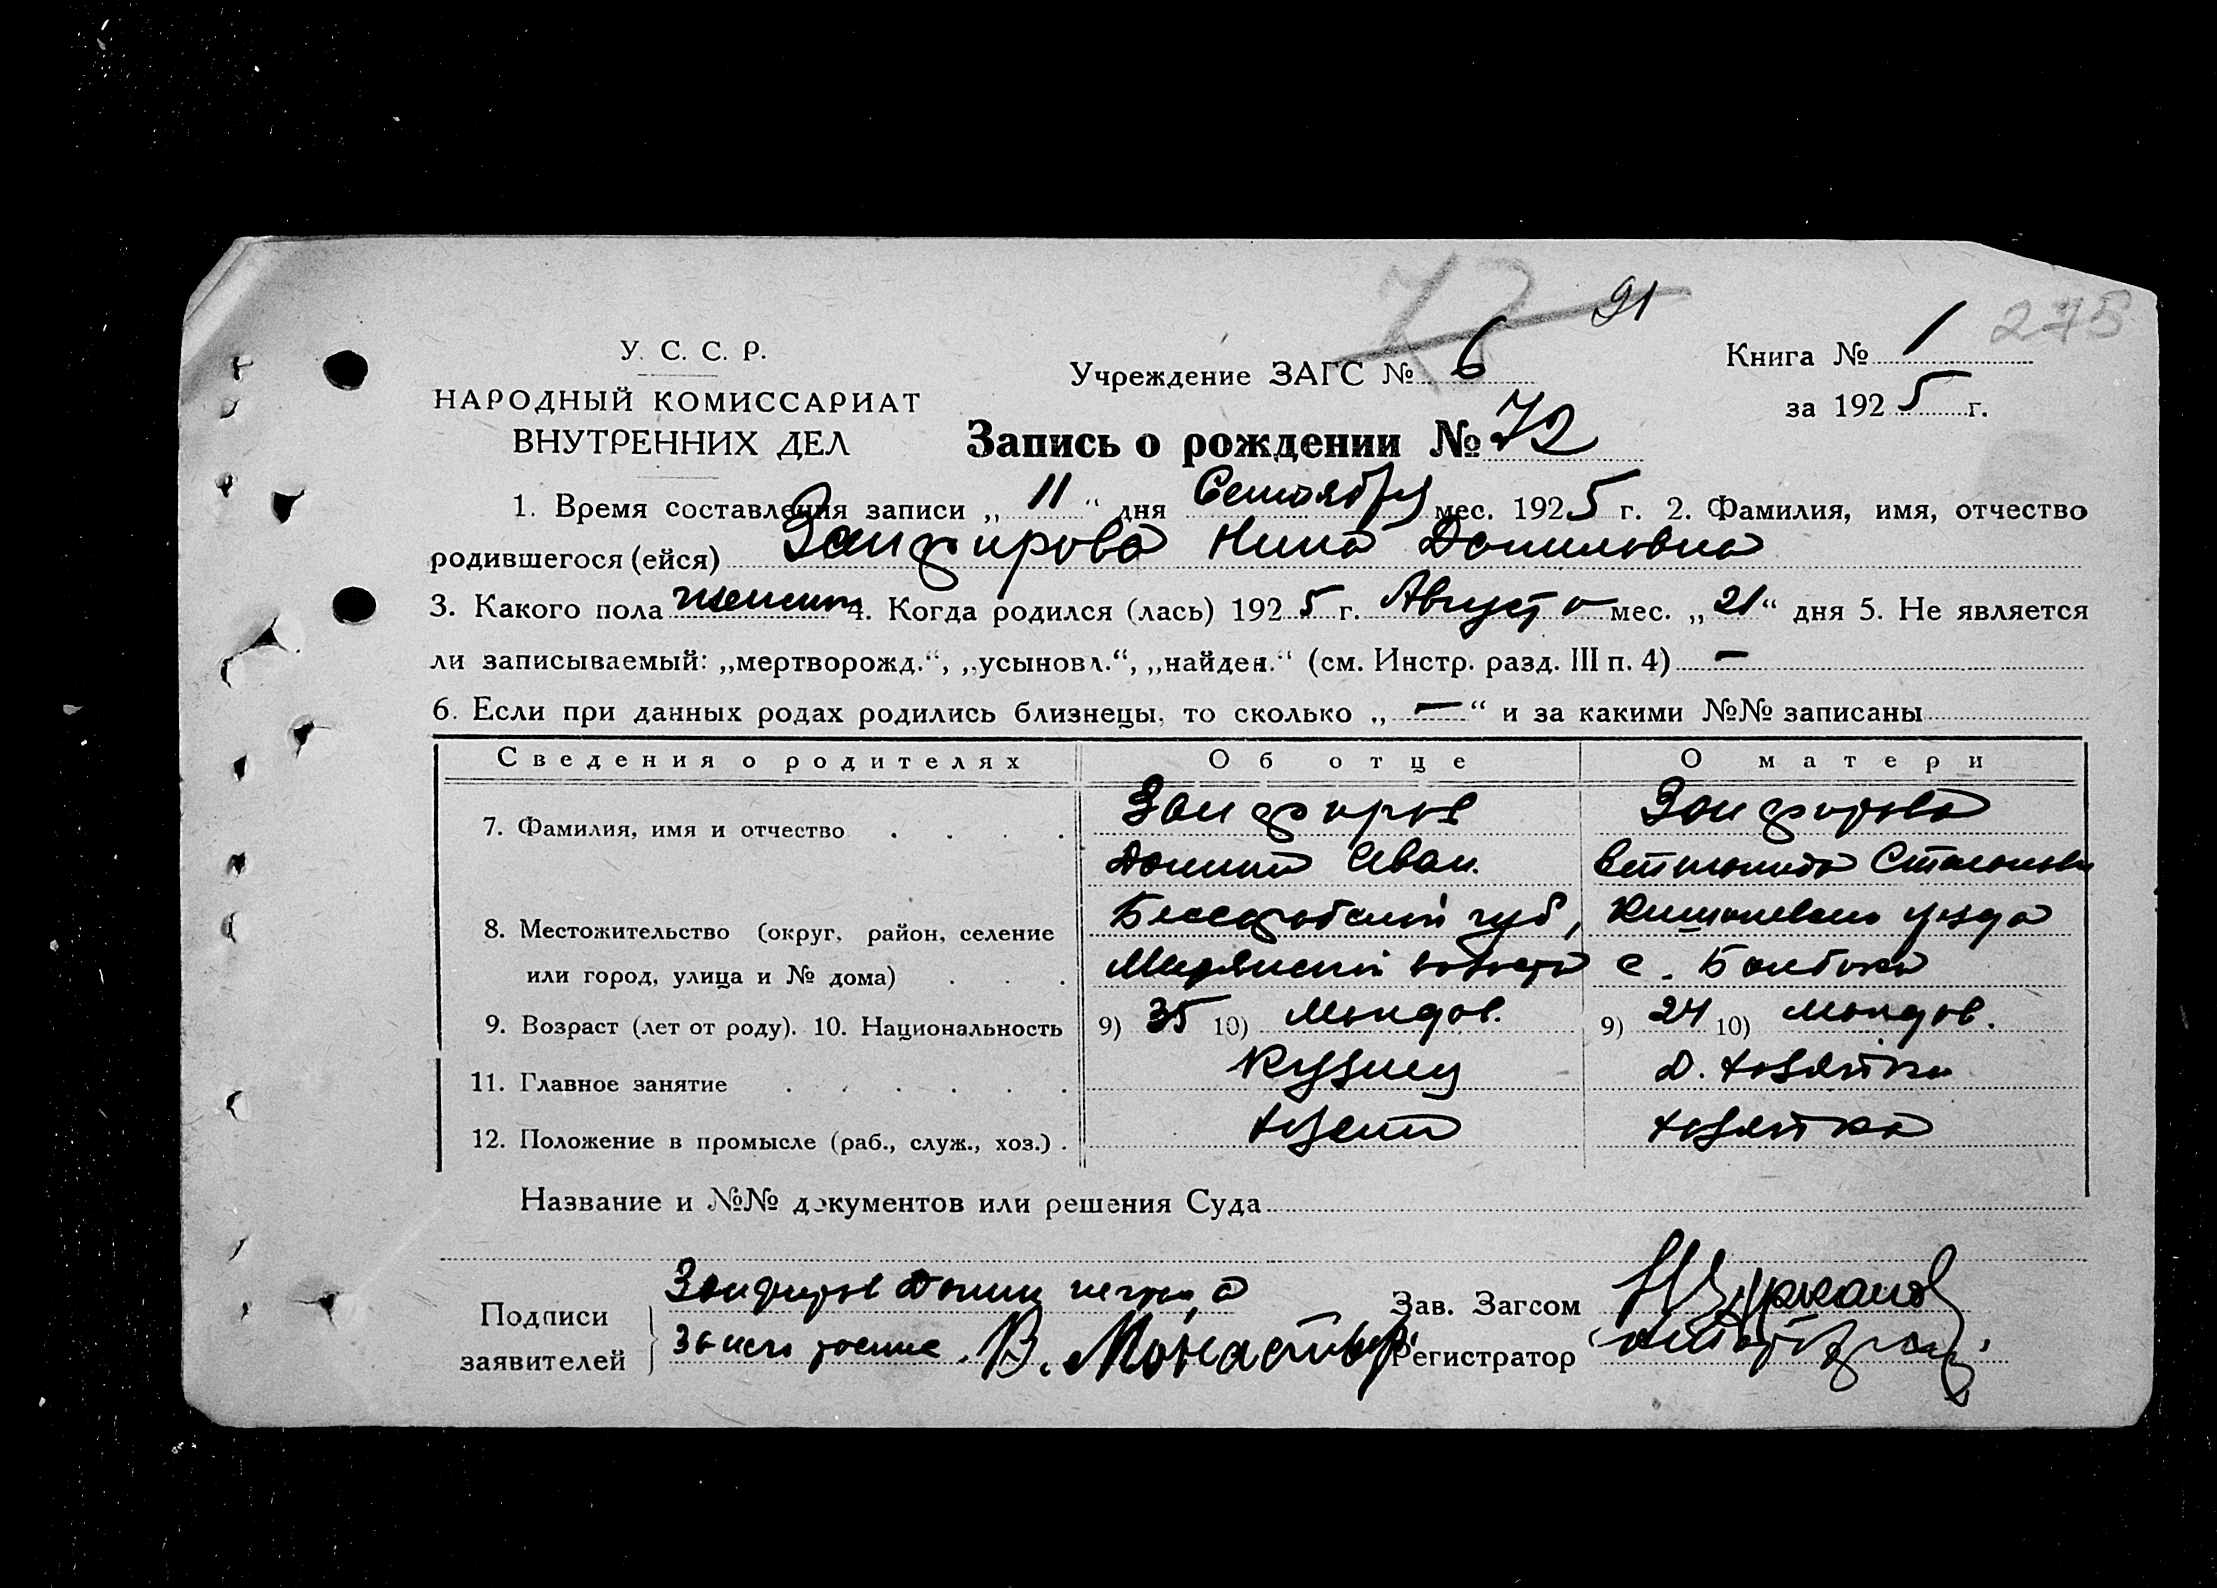 77 91
275
У. С. С. Р.
НАРОДНЫЙ КОМИССАРИАТ
ВНУТРЕННИХ ДЕЛ
Учреждение ЗАГС № 6
Книга № 1
за 1925 г.
Запись о рождении № 72
1. Время составления записи „11“ дня Сентября мес. 1925 г. 2. Фамилия, имя, отчество
родившегося (ейся) Занфирова Нина Даниловна
3. Какого пола женск 4. Когда родился (лась) 1925 г. Августа мес. „21“ дня 5. Не является
ли записываемый: „мертворожд.“, „усыновл.“, „найден.“ (см. Инстр. разд. III п. 4) —
6. Если при данных родах родились близнецы, то сколько „—“ и за какими №№ записаны
Сведения о родителях Об отце О матери
7. Фамилия, имя и отчество Занфиров Занфирова
Даниил Иван.
8. Местожительство (округ, район, селение Бессарабской губ, Кишиневского уезда
или город, улица и № дома) волости с.
9. Возраст (лет от роду). 10. Национальность 9) 35 10) Молдов. 9) 24 10) Молдов.
11. Главное занятие Кузнец д. хозяйка
12. Положение в промысле (раб., служ., хоз.) хозяин хозяйка
Название и №№ документов или решения Суда
Подписи заявителей
Занфиров Данил
В. Монастыр
Зав. Загсом
Регистратор